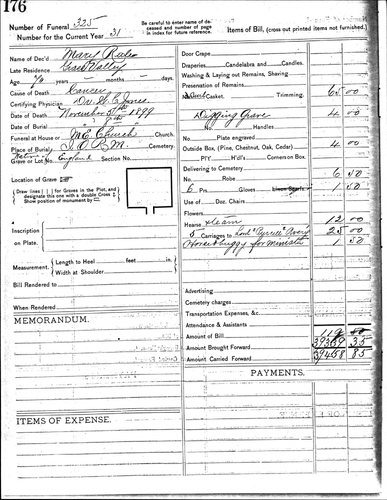 176
Number of Funeral 325
Number for the Current Year 31
Be carefully to enter name of deceased and number of page in index for future reference.
Items of Bill, (cross out printed items not furnished.)
Name of Dec'd Mary Rule
Late Residence Grass Valley
Age 74 years months days.
Cause of Death Cancer
Certifying Physician Dr. W. C. Jones
Date of Death November 5th 1899
Date of Burial
Funeral at House or M.E. Church Church.
Place of Burial I.O.R.M. Cemetery.
Native of England
Grave or Lot No. Section No.
Location of Grave
Draw lines ( ) for Graves in the Plot, and designate this one with a double Cross
Show position of monument by
Inscription
on Plate.
Measurement. Length to Heel feet in.
Width at Shoulder
Bill Rendered to
When Rendered
MEMORANDUM.
ITEMS OF EXPENSE.
Door Crape
Draperies Candelabra and Candles.
Washing & Laying out Remains, Shaving
Preservation of Remains
Casket. Trimming. 65 00
Digging Grave 4 00
Handles
Plate engraved
Outside Box, (Pine, Chestnut, Oak, Cedar) 4 00
PIY H'dl's Corners on Box.
Delivering to Cemetery 6 50
No. Robe
6 Prs. Gloves 1 50
Use of Doz. Chairs
Flowers
Hearse & team 12 00
5 Carriages to 25 00
Horse & buggy for Minister 1 50
Advertising
Cemetery charges
Transportation Expenses, &c.
Attendance & Assistants
Amount of Bill 119 50
Amount Brought Forward 39339 35
Amount Carried Forward 39458 85
PAYMENTS.